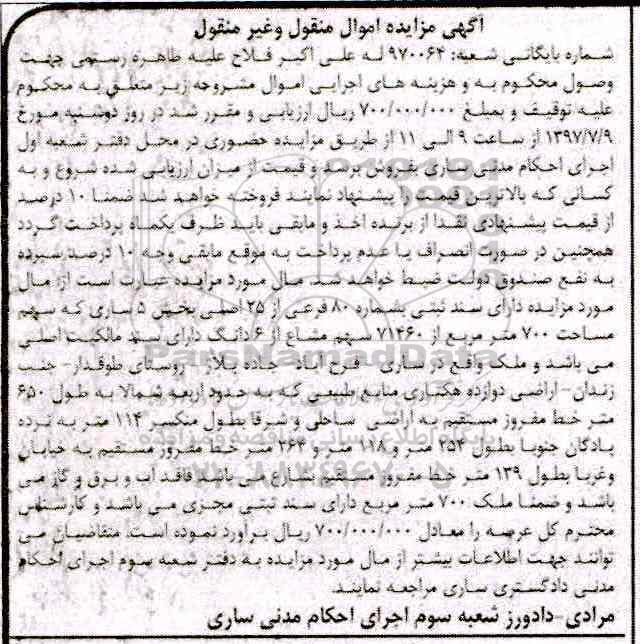 آگهی مزایده اموال منقول وغیر منقول
شماره بایگانی شعبه: ۹۷۰۰۶۴ له علی اکبر فلاح علیه طاهره رستمی جهت
وصول محکوم به و هزینه های اجرایی اموال مشروحه زیر متعلق به محکوم
علیه توقیف و بمبلغ ۷۰۰/۰۰۰/۰۰۰ ریال ارزیابی و مقرر شد در روز دوشنبه مورخ
۱۳۹۷/۷/۹ از ساعت ۹ الی ۱۱ از طریق مزایده حضوری در محل دفتر شعبه اول
اجرای احکام مدنی ساری بفروش برسد و قیمت از میزان ارزیابی شده شروع و به
کسانی که بالاترین قیمت را پیشنهاد نمایند فروخته خواهد شد ضمنا ۱۰ درصد
از قیمت پیشنهادی نقدا از برنده اخذ و مابقی باید ظرف یکماه پرداخت گردد
همچنین در صورت انصراف یا عدم پرداخت به موقع مابقی وجه ۱۰ درصد سپرده
به نفع صندوق دولت ضبط خواهد شد. مال مورد مزایده عبارت است از: مال
مورد مزایده دارای سند ثبتی بشماره ۸۰ فرعی از ۲۵ اصلی بخش ۵ ساری که سهم
مساحت ۷۰۰ متر مربع از ۷۱۴۶۰ سهم مشاع از ۶ دانگ دارای سند مالکیت اصلی
می باشد و ملک واقع در ساری - فرح آباد- جاده پلاژ - روستای طوقدار- جنب
زندان- اراضی دوازده هکتاری منابع طبیعی که به حدود اربعه شمالا به طول ۶۵۰
متر خط مفروز مستقیم به اراضی ساحلی و شرقا بطول منکسر ۱۱۴ متر به نرده
پادگان جنوبا بطول ۲۵۳ متر و ۱۱۸ متر و ۲۶۳ متر خط مفروز مستقیم به خیابان
وغربا بطول ۱۳۹ متر خط مفروز مستقیم بشارع می باشد فاقد آب و برق و گاز می
باشد و ضمنا ملک ۷۰۰ متر مربع دارای سند ثبتی مجزی می باشد و کارشناس
محترم کل عرصه را معادل ۷۰۰/۰۰۰/۰۰۰ ریال برآورد نموده است. متقاضیان می
توانند جهت اطلاعات بیشتر از مال مورد مزایده به دفتر شعبه سوم اجرای احکام
مدنی دادگستری ساری مراجعه نمایند.
مرادی-دادورز شعبه سوم اجرای احکام مدنی ساری
ParsNamadData